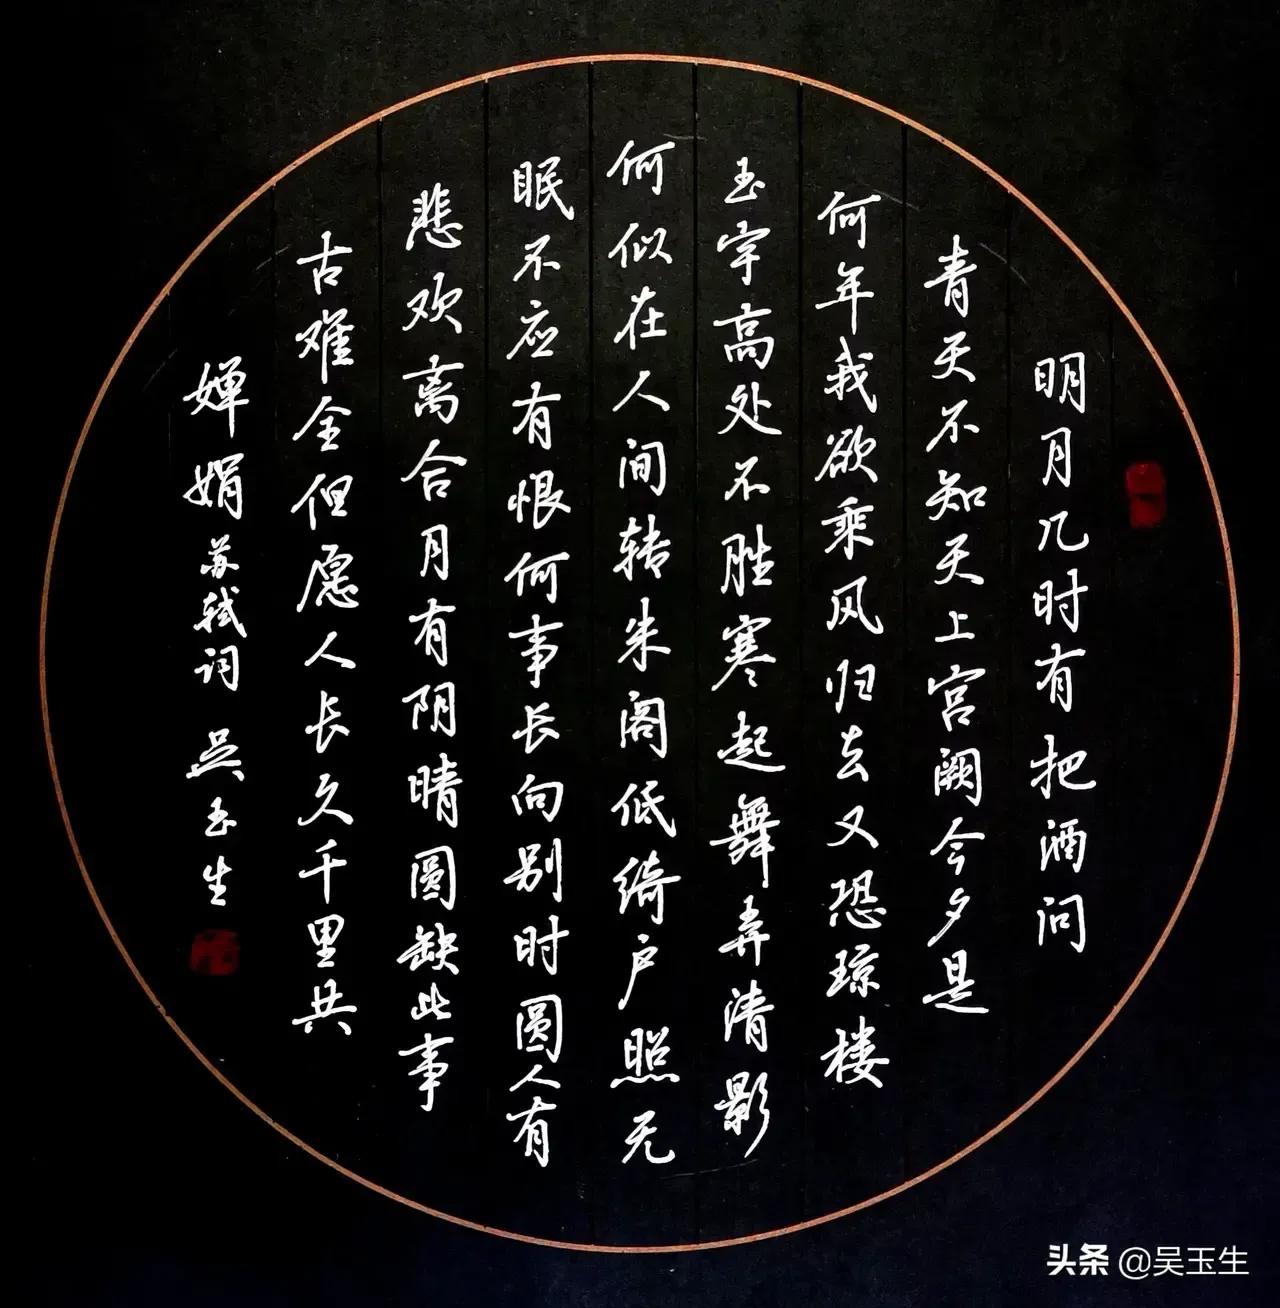 明月几时有把酒问
青天不知天上宫阙今夕是
何年我欲乘风归去又恐琼楼
玉宇高处不胜寒起舞弄清影
何似在人间转朱阁低绮户照无
眠不应有恨何事长向别时圆人有
悲欢离合月有阴晴圆缺此事
古难全但愿人长久千里共
婵娟 苏轼词 吴玉生
头条 @吴玉生